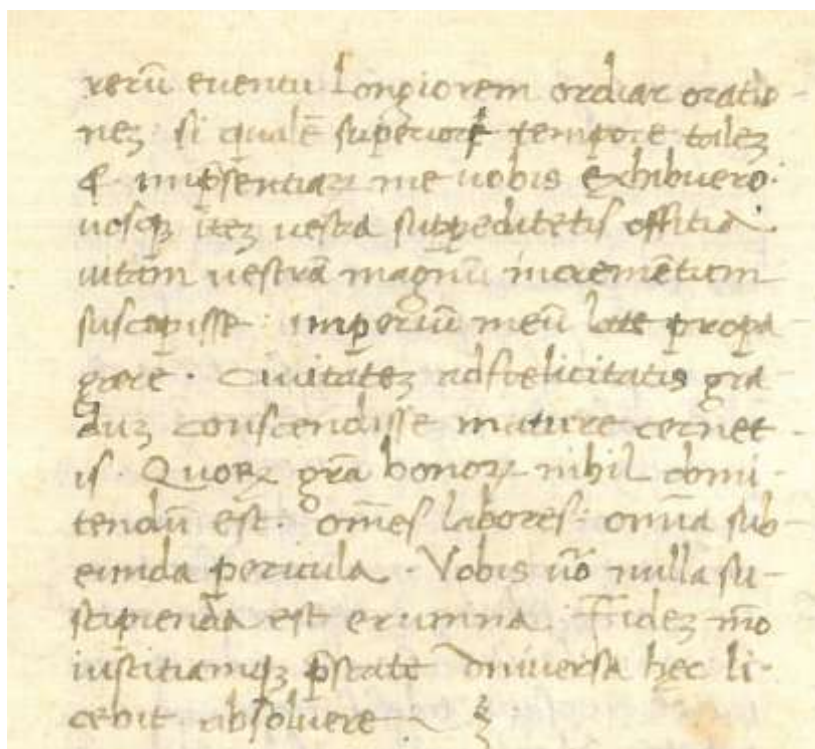 rerū euentu longiorem ordiar oratio-
nez si qualē superiore tempore talez
& inp̄sentiaꝝ me uobis exhibuero.
uosqꝫ itez uestra suppeditetis offitia.
uitam uestrā magnū incremētum
suscepisse: imperiū meū late propa-
gare. Ciuitatez ad foelicitatis gra
duz conscendisse mature cernet-
is. Quoꝝ gr̄a bonoꝝ nihil
tendū est. om̄es labores: omīa sub-
eunda pericula. Vobis ūo nulla su-
scipienda est erumna. Fidez m̄o
iustitiamqꝫ p̄state vniuersa hęc li-
cebit absoluere